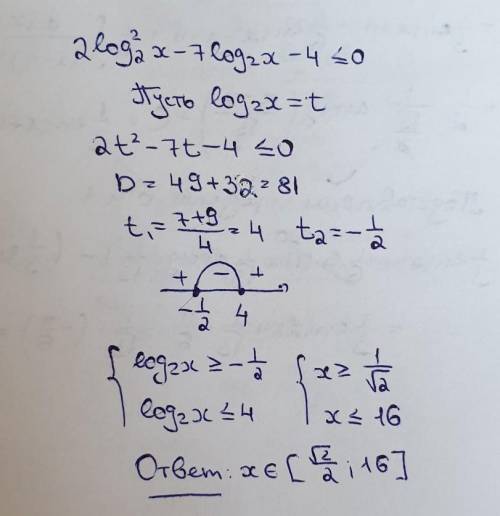 2log₂²x - 7log₂x - 4 ≤ 0
Пусть log₂x = t
2t² - 7t - 4 ≤ 0
D = 49 + 32 = 81
t₁ = (7+9)/4 = 4   t₂ = -1/2
+ - +
-1/2 4
{ log₂x ≥ -1/2   { x ≥ 1/√2
log₂x ≤ 4   x ≤ 16
Ответ: x ∈ [√2/2 ; 16]